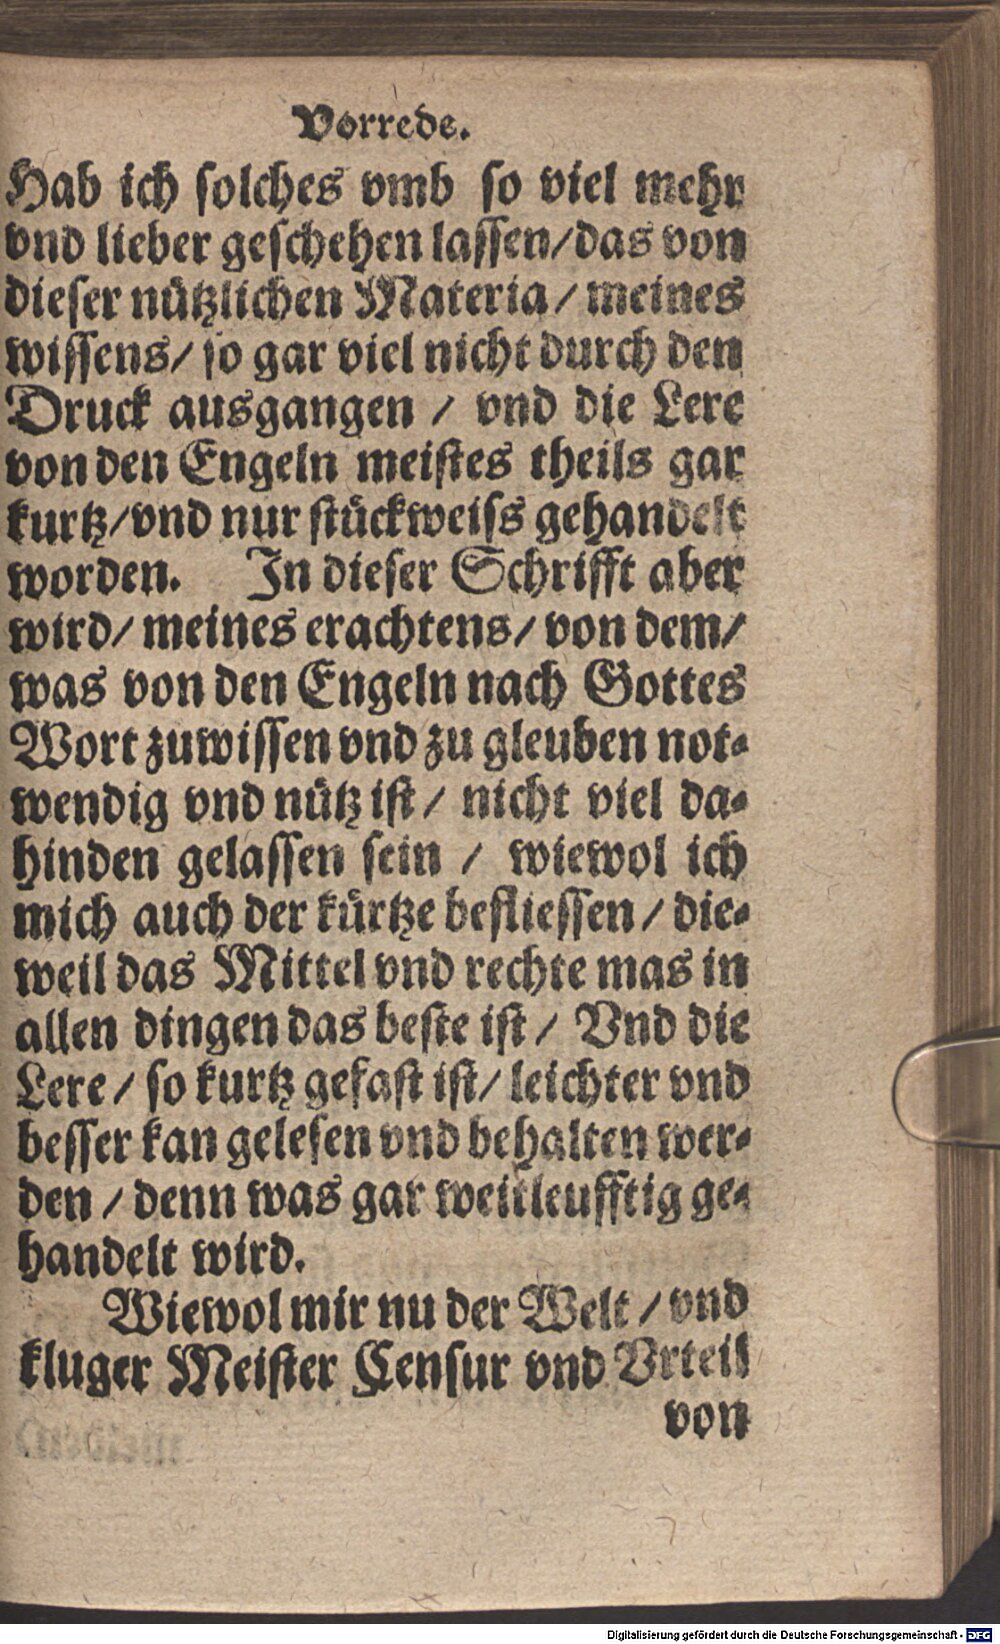 Vorrede.
Hab ich solches vmb so viel mehr
vnd lieber geschehen lassen/das von
dieser nützlichen Materia/ meines
wissens/ so gar viel nicht durch den
Druck ausgangen / vnd die Lere
von den Engeln meistes theils gar
kurtz/vnd nur stückweiss gehandelt
worden. In dieser Schrifft aber
wird/ meines erachtens/ von dem/
was von den Engeln nach Gottes
Wort zuwissen vnd zu gleuben not-
wendig vnd nütz ist / nicht viel da-
hinden gelassen sein / wiewol ich
mich auch der kürtze befliessen / die-
weil das Mittel vnd rechte mas in
allen dingen das beste ist / Vnd die
Lere / so kurtz gefast ist/ leichter vnd
besser kan gelesen vnd behalten wer-
den / denn was gar weitleufftig ge-
handelt wird.
Wiewol mir nu der Welt / vnd
kluger Meister Censur vnd Vrteil
von
Digitalisierung gefördert durch die Deutsche Forschungsgemeinschaft - DFG